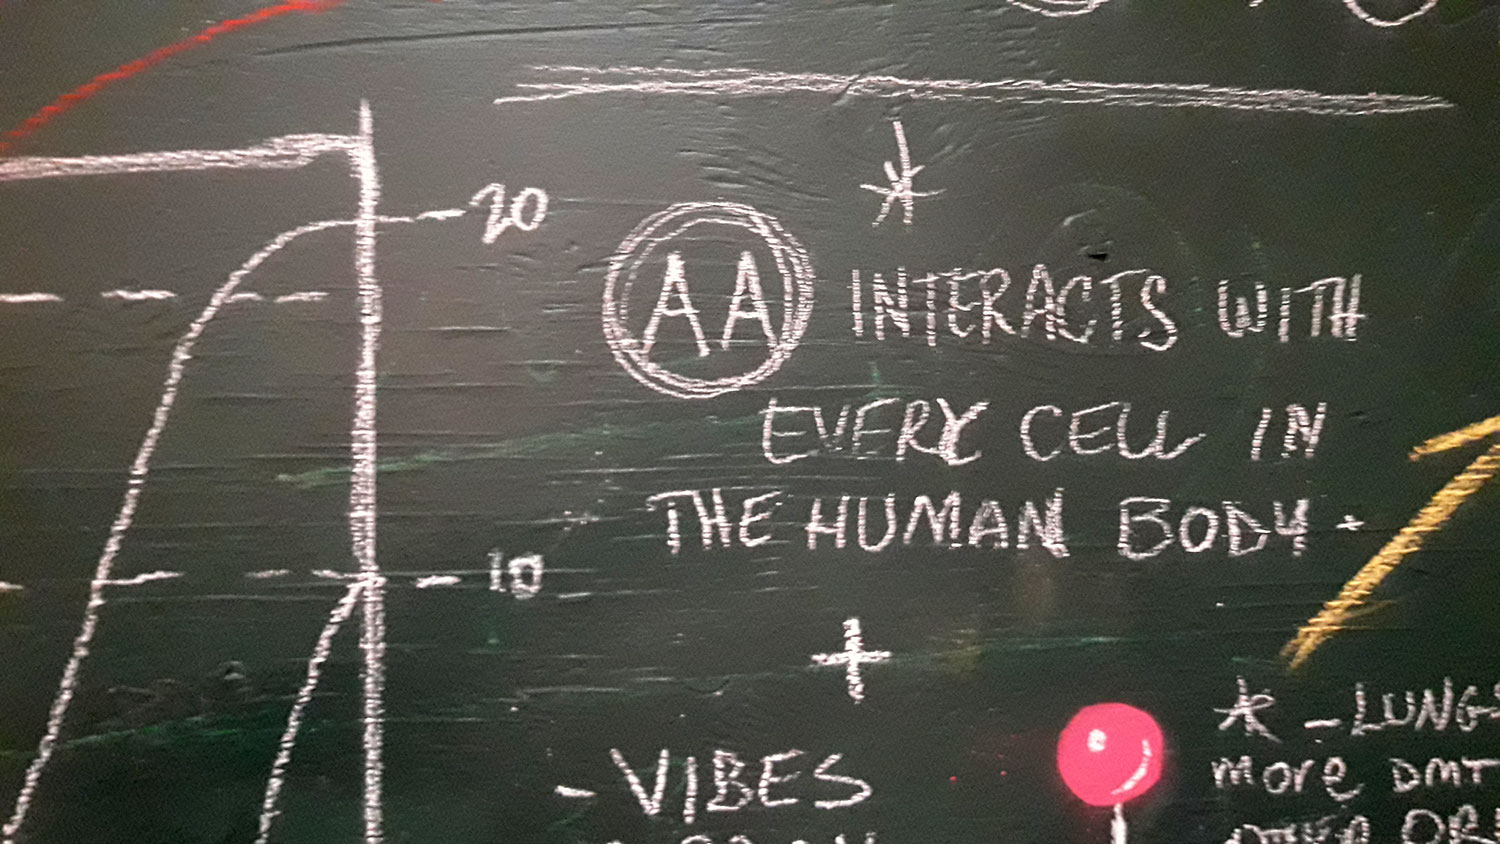 20
*
AA INTERACTS WITH
EVERY CELL IN
THE HUMAN BODY.
10
+
- VIBES
* - LUNGS
more DMT